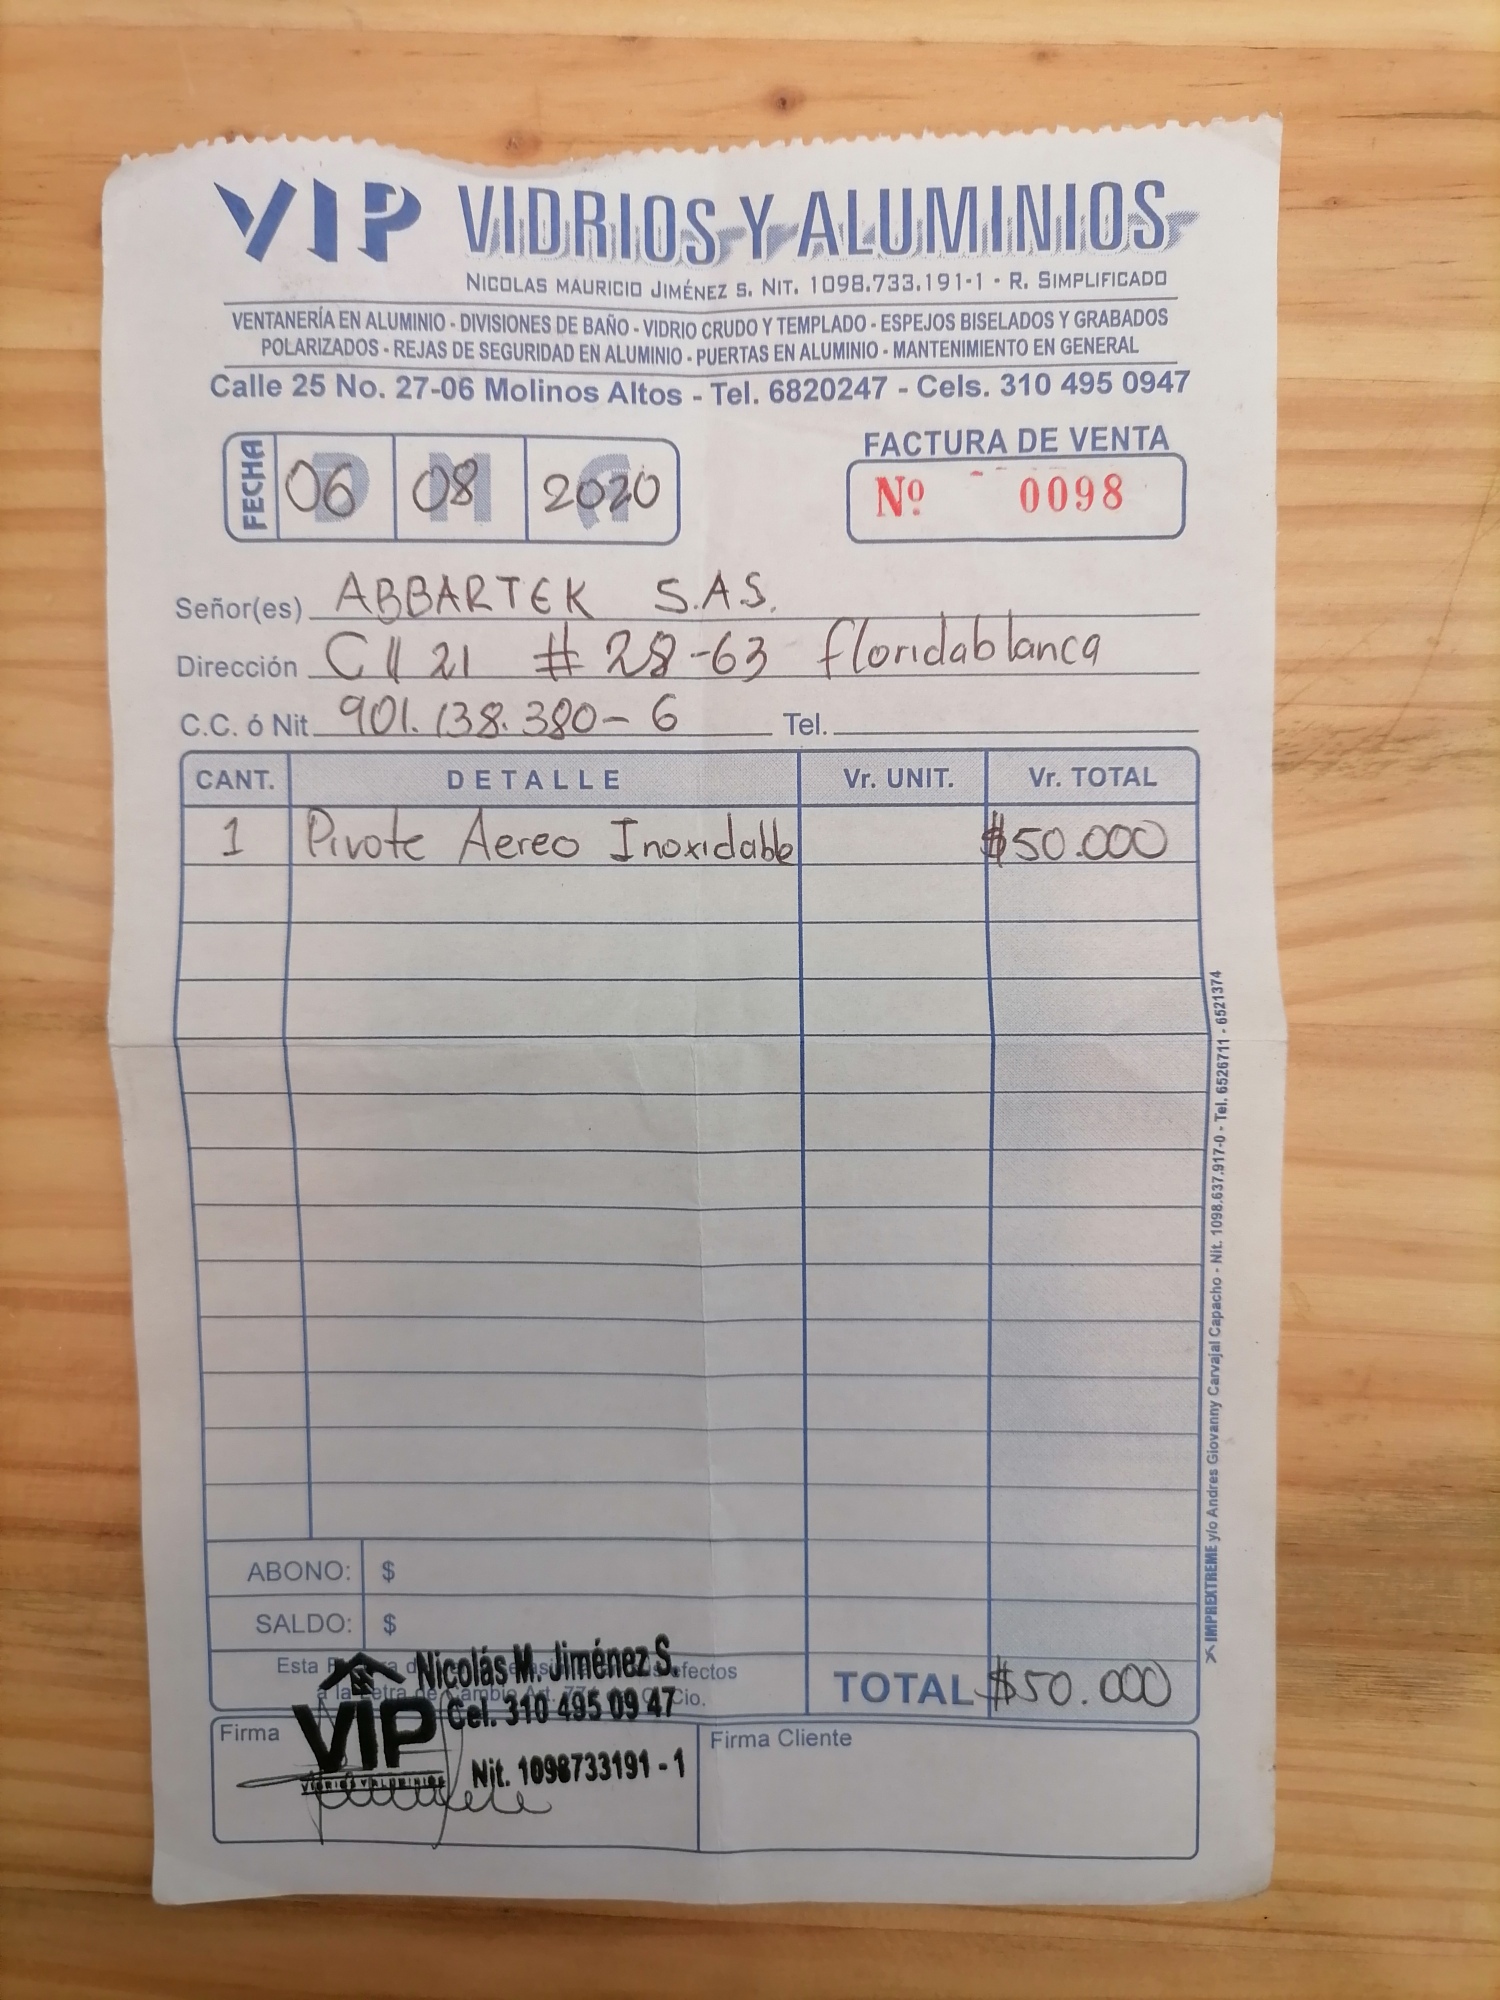 VIP VIDRIOS Y ALUMINIOS
NICOLAS MAURICIO JIMÉNEZ S. NIT. 1098.733.191-1 - R. SIMPLIFICADO
VENTANERÍA EN ALUMINIO - DIVISIONES DE BAÑO - VIDRIO CRUDO Y TEMPLADO - ESPEJOS BISELADOS Y GRABADOS
POLARIZADOS - REJAS DE SEGURIDAD EN ALUMINIO - PUERTAS EN ALUMINIO - MANTENIMIENTO EN GENERAL
Calle 25 No. 27-06 Molinos Altos - Tel. 6820247 - Cels. 310 495 0947
FECHA D 06 M 08 A 2020
FACTURA DE VENTA
Nº 0098
Señor(es) ABBARTEK S.A.S.
Dirección Cll 21 # 28-63 floridablanca
C.C. ó Nit. 901.138.380-6 Tel.
CANT. DETALLE Vr. UNIT. Vr. TOTAL
1 Pivote Aereo Inoxidable $50.000
ABONO: $
SALDO: $
Esta efectos
a la Letra de Cambio Art.
TOTAL $50.000
Nicolás M. Jiménez S.
Cel. 310 495 09 47
VIP
VIDRIOS Y ALUMINIOS
Nit. 1098733191 - 1
Firma
Firma Cliente
IMPREXTREME y/o Andres Giovanny Carvajal Capacho - Nit. 1098.637.917-0 - Tel. 6526711 - 6521374